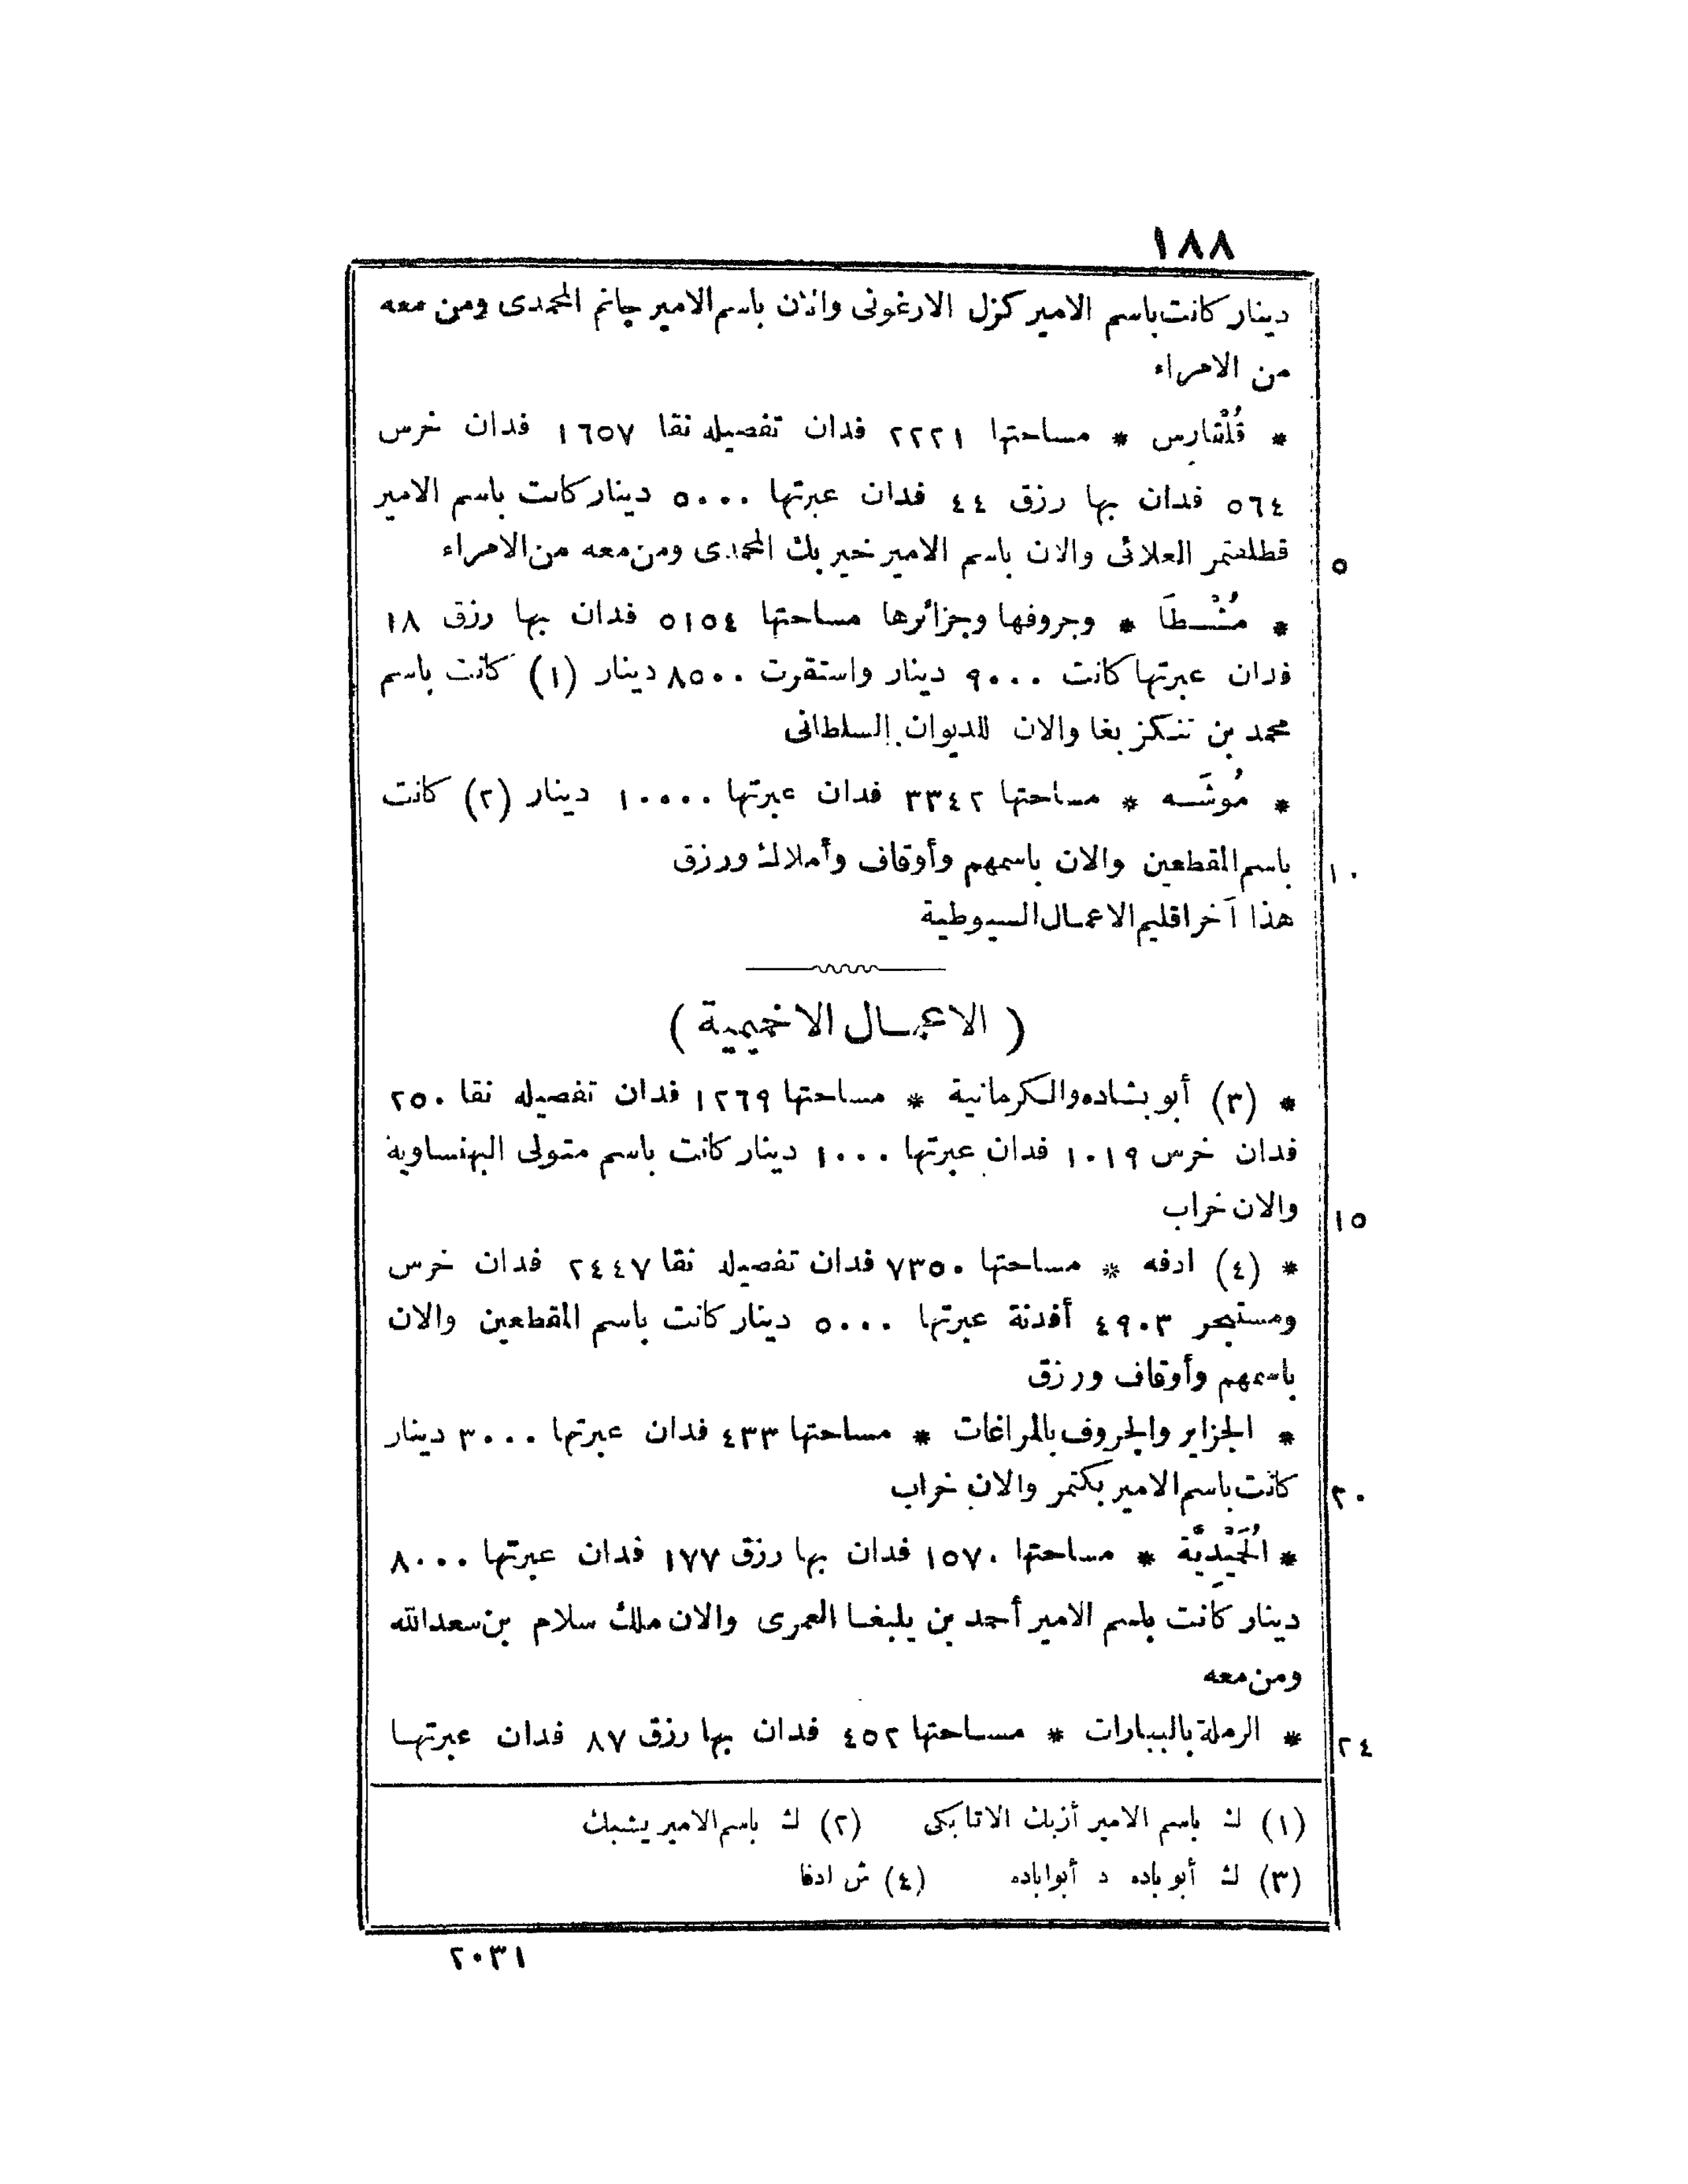 ١٨٨
دينار كانت باسم الامير كزل الارغونى والان باسم الامير جانم المحمدى ومن معه
من الامراء
* قُلُنْقارس * مساحتها ٢٢٢١ فدان تفصيله نقا ١٦٥٧ فدان خرس
٥٦٤ فدان بها رزق ٤٤ فدان عبرتها ٥٠٠٠ دينار كانت باسم الامير
قطلقتمر العلائى والان باسم الامير خير بك المحمدى ومن معه من الامراء
٥
* مُشْطَا * وجروفها وجزائرها مساحتها ٥١٥٤ فدان بها رزق ١٨
فدان عبرتها كانت ٩٠٠٠ دينار واستقرت ٨٥٠٠ دينار (١) كانت باسم
محمد بن تنكز بغا والان للديوان السلطانى
* مُوشَه * مساحتها ٣٣٤٢ فدان عبرتها ١٠٠٠٠ دينار (٢) كانت
باسم المقطعين والان باسمهم وأوقاف وأملاك ورزق
١٠
هذا آخر اقليم الاعمال السيوطية
( الاعمال الاخميمية )
* (٣) أبو بشاده والكرمانية * مساحتها ١٢٦٩ فدان تفصيله نقا ٢٥٠
فدان خرس ١٠١٩ فدان عبرتها ١٠٠٠ دينار كانت باسم متولى البهنساوية
والان خراب
١٥
* (٤) ادفه * مساحتها ٧٣٥٠ فدان تفصيله نقا ٢٤٤٧ فدان خرس
ومستبحر ٤٩٠٣ أفدنة عبرتها ٥٠٠٠ دينار كانت باسم المقطعين والان
باسمهم وأوقاف ورزق
* الجزاير والجروف بالمراغات * مساحتها ٤٣٣ فدان عبرتها ٣٠٠٠ دينار
كانت باسم الامير بكتمر والان خراب
٢٠
* مساحتها ١٥٧٠ فدان بها رزق ١٧٧ فدان عبرتها ٨٠٠٠
دينار كانت باسم الامير أحمد بن يلبغا العمرى والان ملك سلام بن سعد الله
ومن معه
* الرملة بالببارات * مساحتها ٤٥٢ فدان بها رزق ٨٧ فدان عبرتها
٢٤
(١) ك باسم الامير أزبك الاتابكى (٢) ك باسم الامير يشبك
(٣) ك أبو باده د أبو اباده (٤) ش ادفا
٢٠٣١